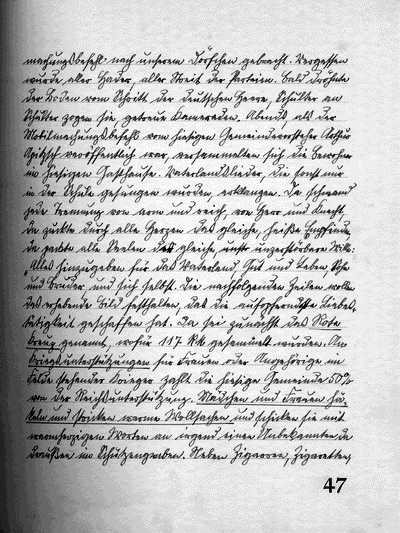 machungsbefehl nach unserem Dörfchen gebracht. Vergessen
wurde aller Hader, aller Streit der Parteien. Bald dröhnte
der Boden vom Schritt der deutschen Heere, Schulter an
Schulter zogen sie, getreue Kameraden. Abends, als der
Mobilmachungsbefehl vom hiesigen Gemeindevorsteher
veröffentlicht war, versammelten sich die Bewohner
im hiesigen Gasthause. Vaterlandslieder, die sonst nur
in der Schule gesungen wurden, erklangen. Da schwand
jede Trennung von arm und reich, von Herr und Knecht,
da zuckte durch alle Herzen das gleiche, heiße Empfinden,
da packte alle Seelen der gleiche, unzerstörbare Wille:
„Alles hinzugeben für das Vaterland, Gut und Leben, Sohn
und Bruder und sich selbst. Die nachfolgenden Zeilen wollen
das erhebende Bild festhalten, das die aufopferndste Liebes-
tätigkeit geschaffen hat. Da sei zunächst das Rote
Kreuz genannt, wofür 117 RM gesammelt wurden. An
Kriegsunterstützungen für Frauen oder Angehörige im
Felde stehender Krieger zahlt die hiesige Gemeinde 50%
von der Reichsunterstützung. Mädchen und Frauen hä-
keln und stricken warme Wollsachen und schicken sie mit
warmherzigen Worten an irgend einen Unbekannten da
draußen im Schützengraben. Neben Zigarren, Zigaretten,
47